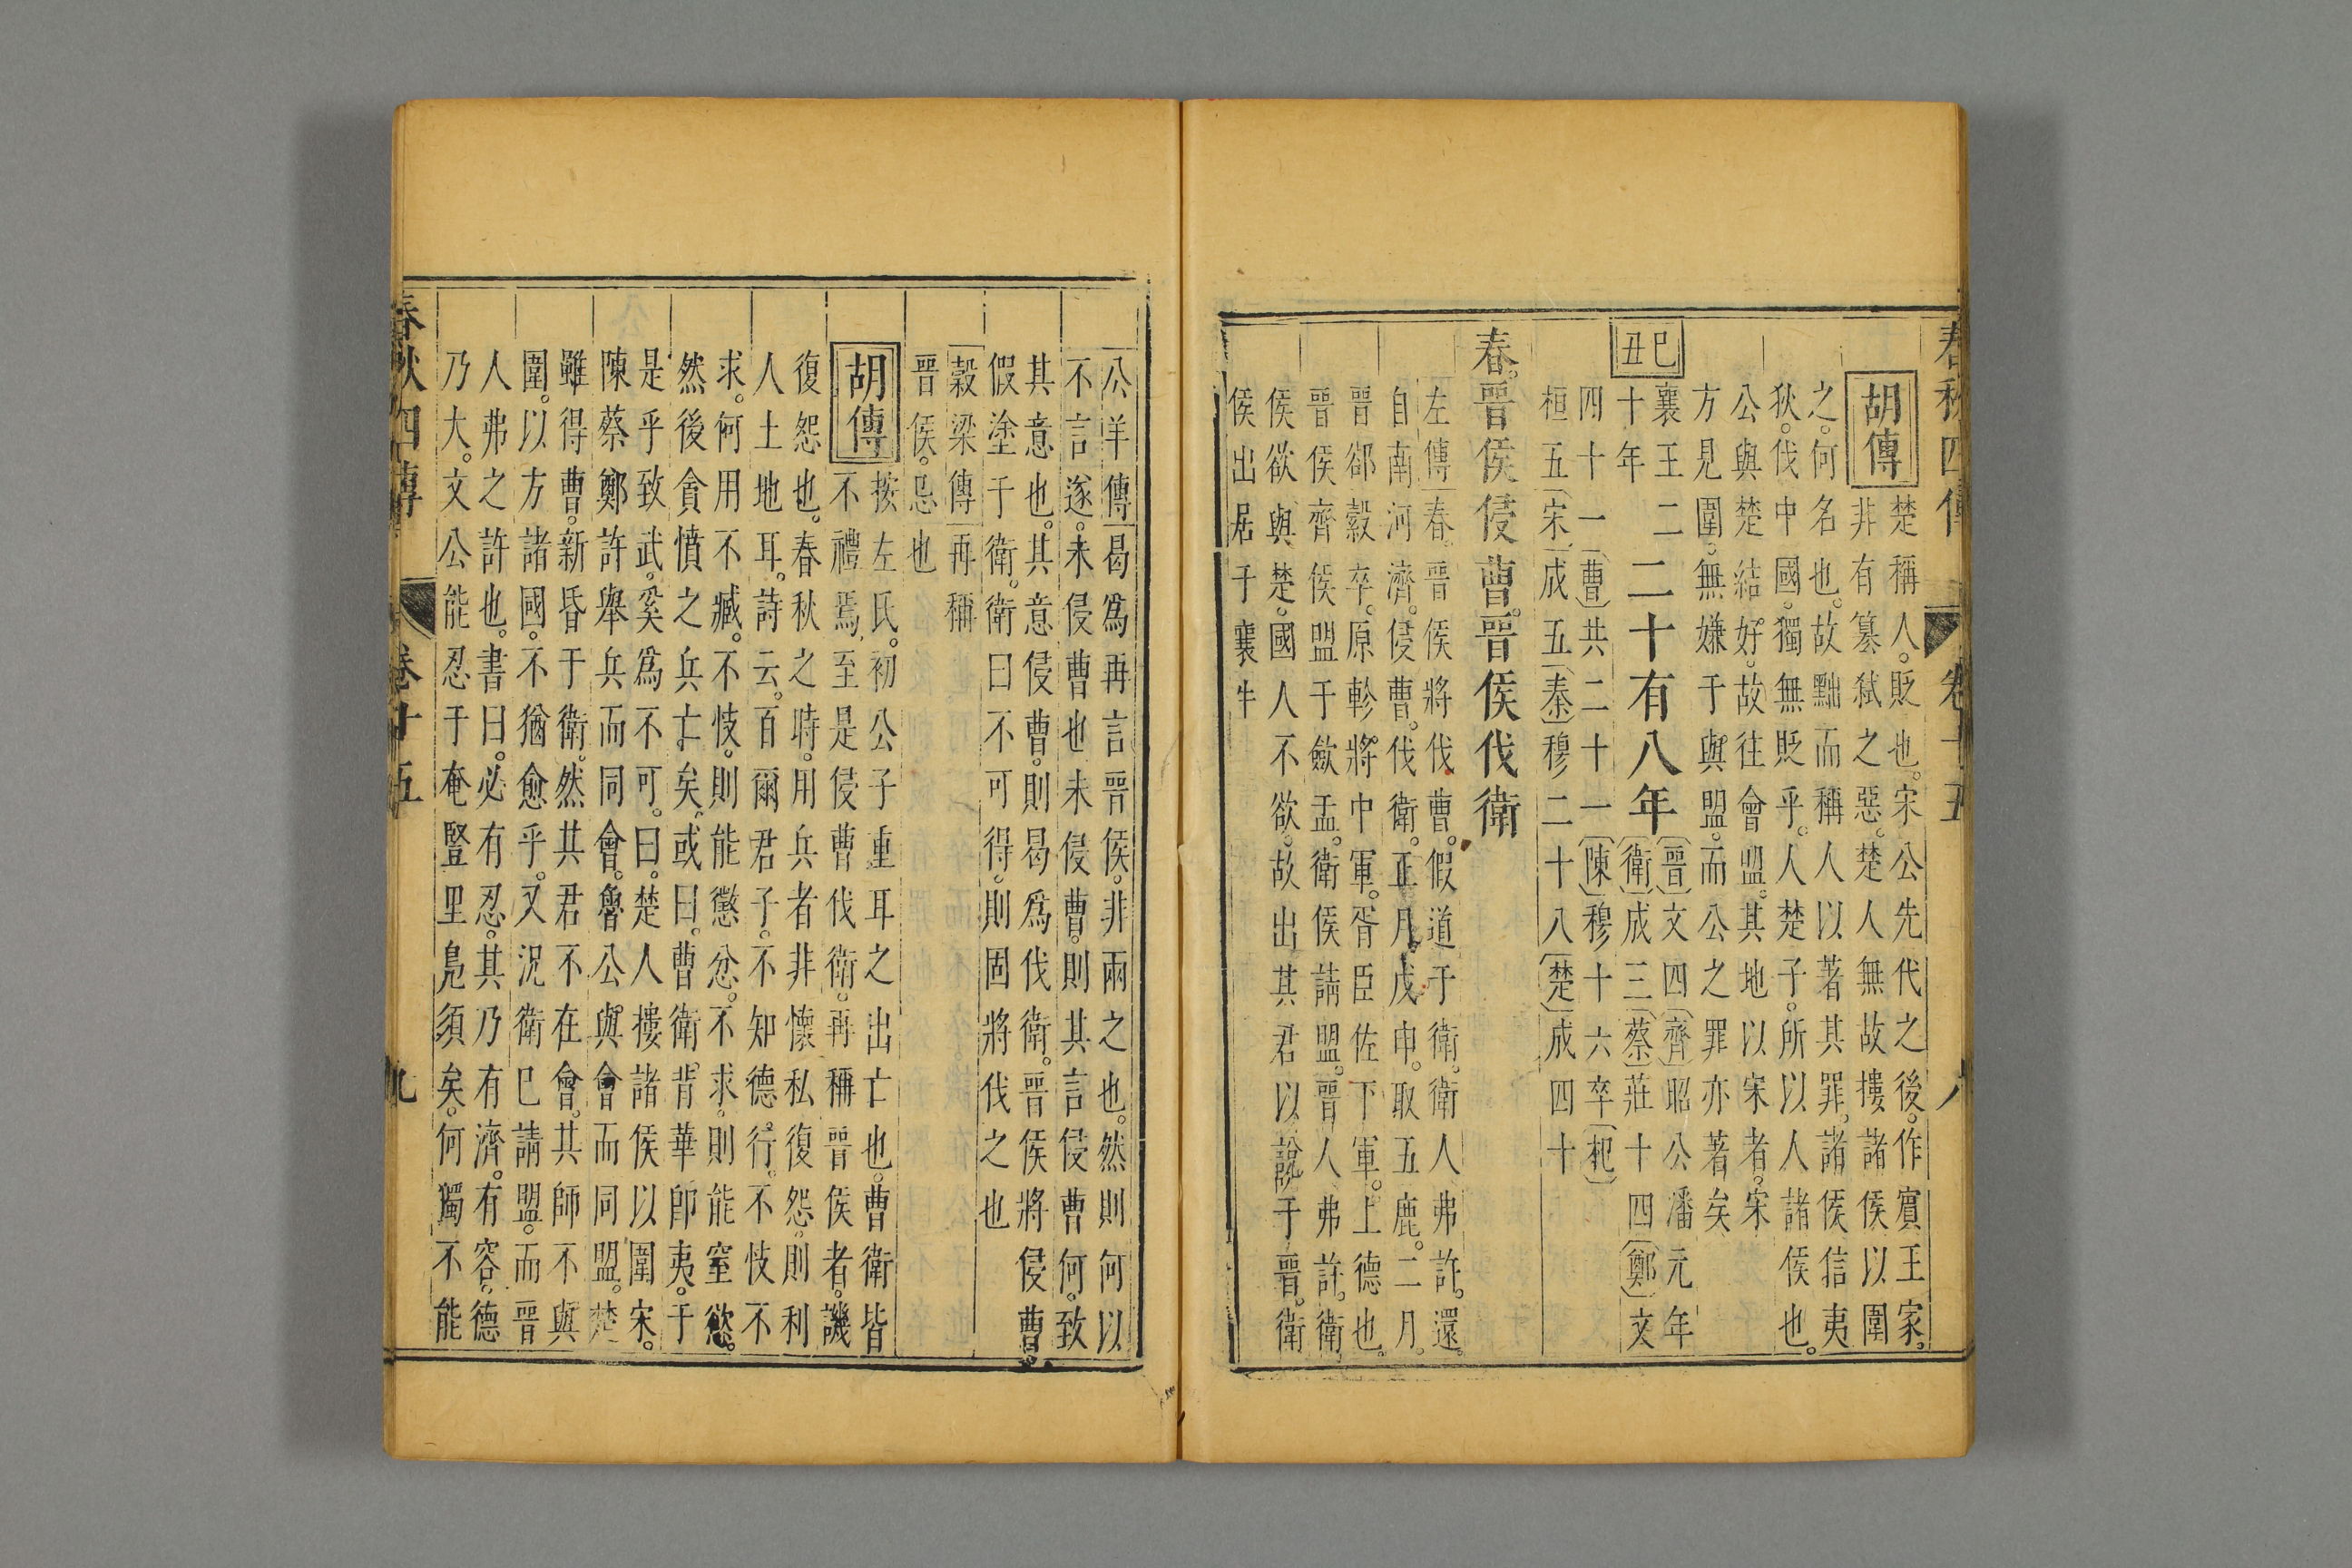 春秋四傳 卷十五 八
胡傳
楚稱人。貶也。宋公先代之後。作賓王家。
非有簒弑之惡。楚人無故摟諸侯以圍
之。何名也。故黜而稱人以著其罪。諸侯信夷
狄。伐中國。獨無貶乎。人楚子。所以人諸侯也。
公與楚結好。故往會盟。其地以宋者。宋
方見圍。無嫌于與盟。而公之罪亦著矣
巳丑
襄王二
十年
二十有八年
(晉)文四(齊)昭公潘元年
(衛)成三(蔡)莊十四(鄭)文
四十一(曹)共二十一(陳)穆十六卒(杞)
桓五(宋)成五(秦)穆二十八(楚)成四十
春。晉侯侵曹。晉侯伐衛
左傳春。晉侯將伐曹。假道于衛。衛人弗許。還。
自南河濟。侵曹。伐衛。正月。戊申。取五鹿。二月。
晉郤縠卒。原軫將中軍。胥臣佐下軍。上德也。
晉侯齊侯盟于斂盂。衛侯請盟。晉人弗許。衛
侯欲與楚。國人不欲。故出其君以說于晉。衛
侯出居于襄牛
公羊傳曷爲再言晉侯。非兩之也。然則何以
不言遂。未侵曹也未侵曹。則其言侵曹何。致
其意也。其意侵曹。則曷爲伐衛。晉侯將侵曹。
假塗于衛。衛曰不可得。則固將伐之也
穀梁傳再稱
晉侯。忌也
胡傳
按左氏。初公子重耳之出亡也。曹衛皆
不禮焉。至是侵曹伐衛。再稱晉侯者。譏
復怨也。春秋之時。用兵者非懷私復怨。則利
人土地耳。詩云。百爾君子。不知德行。不忮不
求。何用不臧。不忮。則能懲忿。不求。則能窒慾。
然後貪憤之兵亡矣。或曰。曹衛背華卽夷。于
是乎致武。奚爲不可。曰。楚人摟諸侯以圍宋。
陳蔡鄭許舉兵而同會。魯公與會而同盟。楚
雖得曹。新昏于衛。然其君不在會。其師不與
圍。以方諸國。不猶愈乎。又況衛巳請盟。而晉
人弗之許也。書曰。必有忍。其乃有濟。有容。德
乃大。文公能忍于奄豎里鳧須矣。何獨不能
春秋四傳 卷十五 九